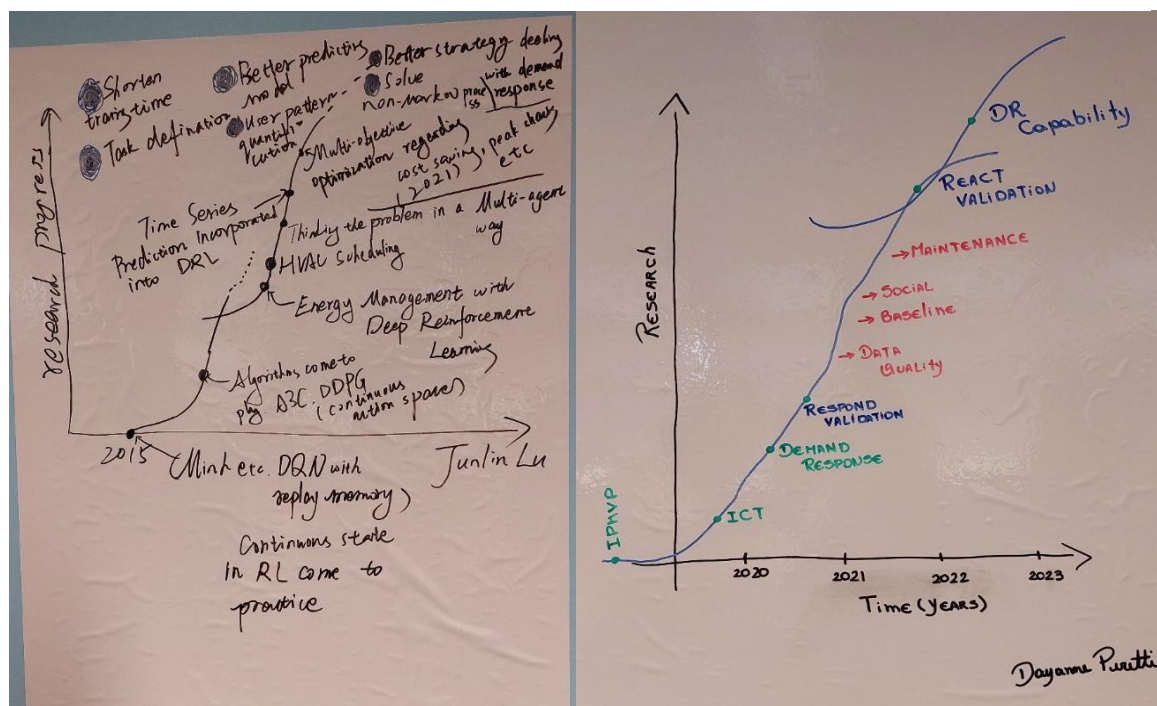 Shorten
traingtime
Task defination
Better predicting
model
User pattern
quantifi-
cation
Better strategy dealing
with demand
response
Solve
non-markov process
Multi-objective
optimization regarding
cost saving, peak
etc
(2021)
Time Series
Prediction Incorporated
into DRL
Thinking the problem in a Multi-agent
way
HVAC Scheduling
Energy Management with
Deep Reinforcement
Learning
Algorithms come to
play A3C. DDPG
(continuous
action space)
research progress
2015
Minh etc. DQN with
replay memory)
Junlin Lu
Continuous state
In RL come to
practice
DR
Capability
REACT
VALIDATION
→ MAINTENANCE
→ SOCIAL
→ BASELINE
→ DATA
QUALITY
RESPOND
VALIDATION
DEMAND
RESPONSE
ICT
IPMVP
RESEARCH
2020 2021 2022 2023
TIME (YEARS)
Dayanne Peretti